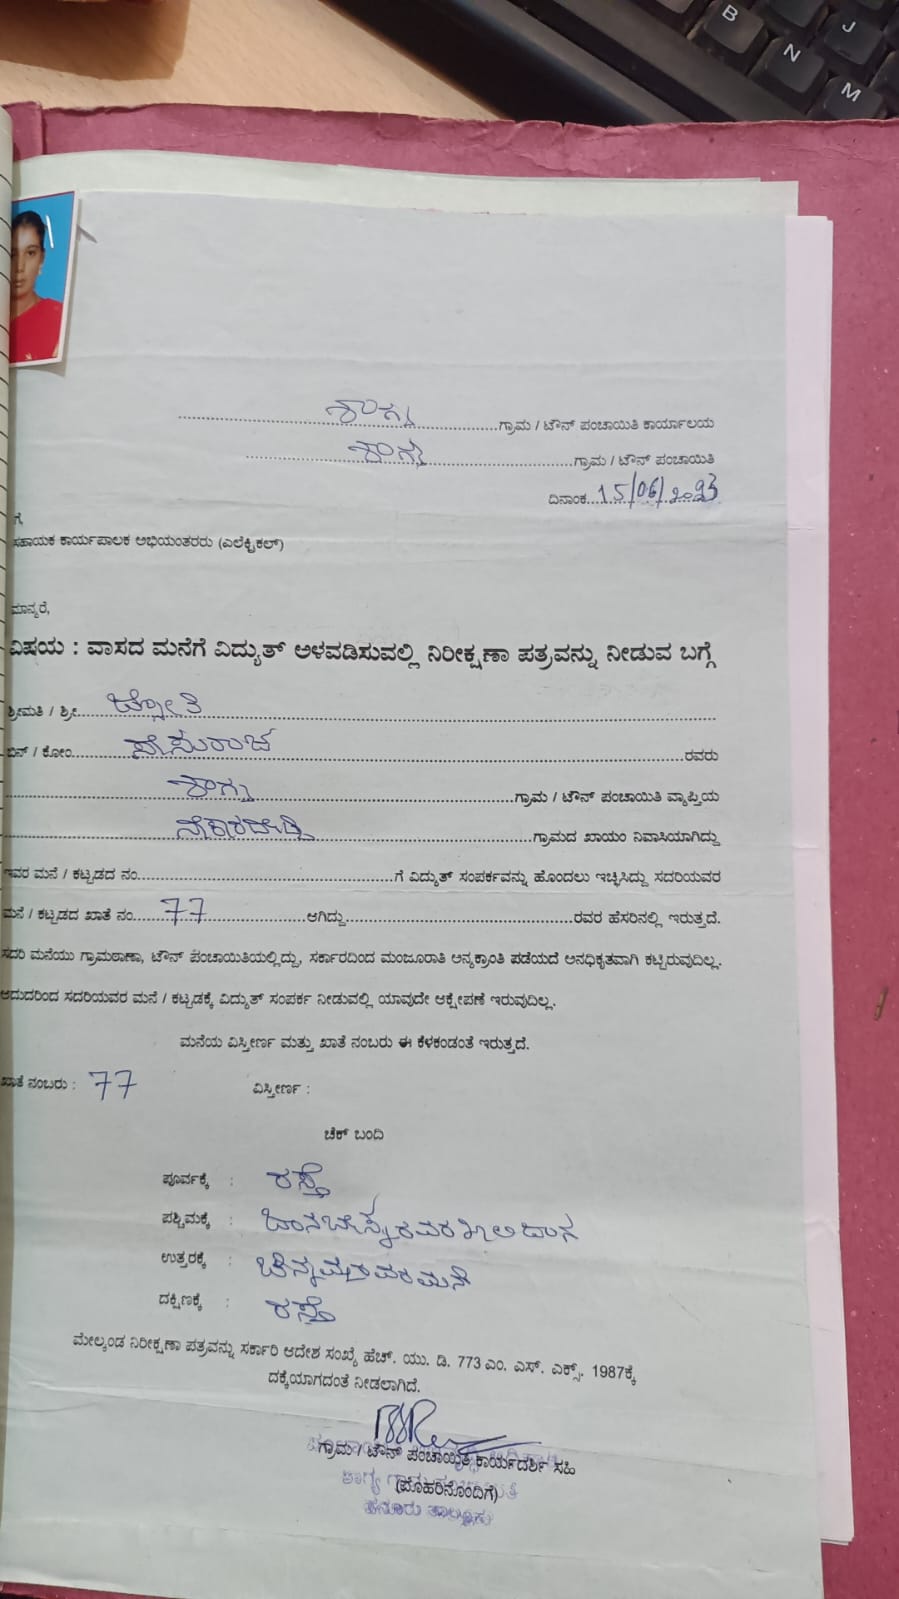 B J N M
ಶಾಗ್ಯ ಗ್ರಾಮ / ಟೌನ್ ಪಂಚಾಯಿತಿ ಕಾರ್ಯಾಲಯ
ಶಾಗ್ಯ ಗ್ರಾಮ / ಟೌನ್ ಪಂಚಾಯಿತಿ
ದಿನಾಂಕ 15/06/2023
ಗೆ,
ಸಹಾಯಕ ಕಾರ್ಯಪಾಲಕ ಅಭಿಯಂತರರು (ಎಲೆಕ್ಟ್ರಿಕಲ್)
ಮಾನ್ಯರೆ,
ವಿಷಯ : ವಾಸದ ಮನೆಗೆ ವಿದ್ಯುತ್ ಅಳವಡಿಸುವಲ್ಲಿ ನಿರೀಕ್ಷಣಾ ಪತ್ರವನ್ನು ನೀಡುವ ಬಗ್ಗೆ
ಶ್ರೀಮತಿ / ಶ್ರೀ ಜ್ಯೋತಿ
ಬಿನ್ / ಕೋಂ ಯೇಸುರಾಜ ರವರು
ಶಾಗ್ಯ ಗ್ರಾಮ / ಟೌನ್ ಪಂಚಾಯಿತಿ ವ್ಯಾಪ್ತಿಯ
ಗ್ರಾಮದ ಖಾಯಂ ನಿವಾಸಿಯಾಗಿದ್ದು
ಇವರ ಮನೆ / ಕಟ್ಟಡದ ನಂ ಗೆ ವಿದ್ಯುತ್ ಸಂಪರ್ಕವನ್ನು ಹೊಂದಲು ಇಚ್ಚಿಸಿದ್ದು ಸದರಿಯವರ
ಮನೆ / ಕಟ್ಟಡದ ಖಾತೆ ನಂ 77 ಆಗಿದ್ದು ರವರ ಹೆಸರಿನಲ್ಲಿ ಇರುತ್ತದೆ.
ಸದರಿ ಮನೆಯು ಗ್ರಾಮಠಾಣಾ, ಟೌನ್ ಪಂಚಾಯಿತಿಯಲ್ಲಿದ್ದು, ಸರ್ಕಾರದಿಂದ ಮಂಜೂರಾತಿ ಅನ್ಯಕ್ರಾಂತಿ ಪಡೆಯದೆ ಅನಧಿಕೃತವಾಗಿ ಕಟ್ಟಿರುವುದಿಲ್ಲ.
ಆದುದರಿಂದ ಸದರಿಯವರ ಮನೆ / ಕಟ್ಟಡಕ್ಕೆ ವಿದ್ಯುತ್ ಸಂಪರ್ಕ ನೀಡುವಲ್ಲಿ ಯಾವುದೇ ಆಕ್ಷೇಪಣೆ ಇರುವುದಿಲ್ಲ.
ಮನೆಯ ವಿಸ್ತೀರ್ಣ ಮತ್ತು ಖಾತೆ ನಂಬರು ಈ ಕೆಳಕಂಡಂತೆ ಇರುತ್ತದೆ.
ಖಾತೆ ನಂಬರು : 77 ವಿಸ್ತೀರ್ಣ :
ಚೆಕ್ ಬಂದಿ
ಪೂರ್ವಕ್ಕೆ : ರಸ್ತೆ
ಪಶ್ಚಿಮಕ್ಕೆ :
ಉತ್ತರಕ್ಕೆ : ಚಿನ್ನಮ್ಮರವರ ಮನೆ
ದಕ್ಷಿಣಕ್ಕೆ : ರಸ್ತೆ
ಮೇಲ್ಕಂಡ ನಿರೀಕ್ಷಣಾ ಪತ್ರವನ್ನು ಸರ್ಕಾರಿ ಆದೇಶ ಸಂಖ್ಯೆ ಹೆಚ್. ಯು. ಡಿ. 773 ಎಂ. ಎಸ್. ಎಕ್ಸ್. 1987ಕ್ಕೆ
ದಕ್ಕೆಯಾಗದಂತೆ ನೀಡಲಾಗಿದೆ.
ಗ್ರಾಮ / ಟೌನ್ ಪಂಚಾಯಿತಿ ಕಾರ್ಯದರ್ಶಿ ಸಹಿ
(ಮೊಹರಿನೊಂದಿಗೆ)
ಹನೂರು ತಾಲ್ಲೂಕು